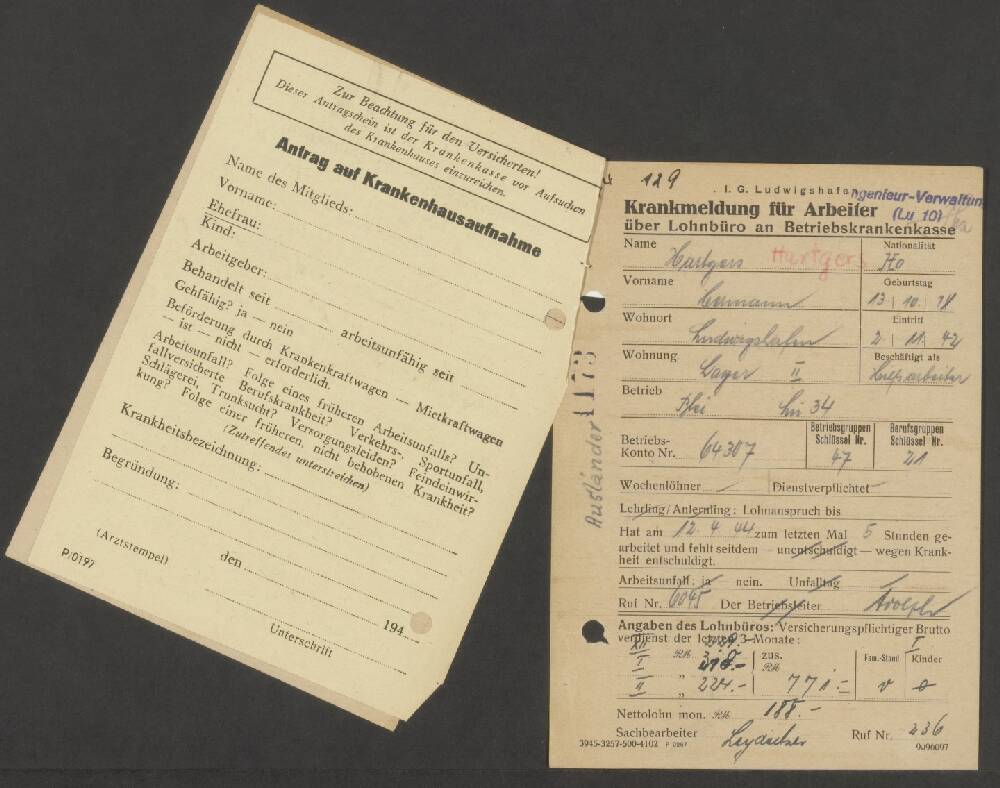 Zur Beachtung für den Versicherten!
Dieser Antragschein ist der Krankenkasse vor Aufsuchen
des Krankenhauses einzureichen.
Antrag auf Krankenhausaufnahme
Name des Mitglieds:
Vorname:
Ehefrau:
Kind:
Arbeitgeber:
Behandelt seit arbeitsunfähig seit
Gehfähig? ja — nein
Beförderung durch Krankenkraftwagen — Mietkraftwagen
— ist — nicht — erforderlich.
Arbeitsunfall? Folge eines früheren Arbeitsunfalls? Un-
fallversicherte Berufskrankheit? Verkehrs-, Sportunfall,
Schlägerei, Trunksucht? Versorgungsleiden? Feindeinwir-
kung? Folge einer früheren, nicht behobenen Krankheit?
(Zutreffendes unterstreichen)
Krankheitsbezeichnung:
Begründung:
(Arztstempel)
den 194
P/0197
Unterschrift
129
I. G. Ludwigshafen
Ingenieur-Verwaltung
(Lu 10)
Krankmeldung für Arbeiter
über Lohnbüro an Betriebskrankenkasse
Name Hartgers Hartgers Nationalität Ho
Vorname Hermann Geburtstag 13 10. 18
Wohnort Ludwigshafen Eintritt 2. 11. 42
Wohnung Lager II Beschäftigt als Hilfsarbeiter
Betrieb Blei Lu 34
Betriebs-
Konto Nr. 64307
Betriebsgruppen
Schlüssel Nr.
47
Berufsgruppen
Schlüssel Nr.
21
Ausländer 1173
Wochenlöhner Dienstverpflichtet
Lehrling/Anlernling: Lohnanspruch bis
Hat am 12. 4. 44 zum letzten Mal 5 Stunden ge-
arbeitet und fehlt seitdem — unentschuldigt — wegen Krank-
heit entschuldigt.
Arbeitsunfall: ja nein. Unfalltag
Ruf Nr. 6045 Der Betriebsleiter
Angaben des Lohnbüros: Versicherungspflichtiger Brutto
verdienst der letzten 3 Monate:
XII RM 329.-
I „ 218.- zus. RM
II „ 224.- 771.-
Fam.-Stand v
I
Kinder
Nettolohn mon. RM 188.-
Sachbearbeiter Ruf Nr. 236
3945-3257-500-4102 P 0297 9J96097